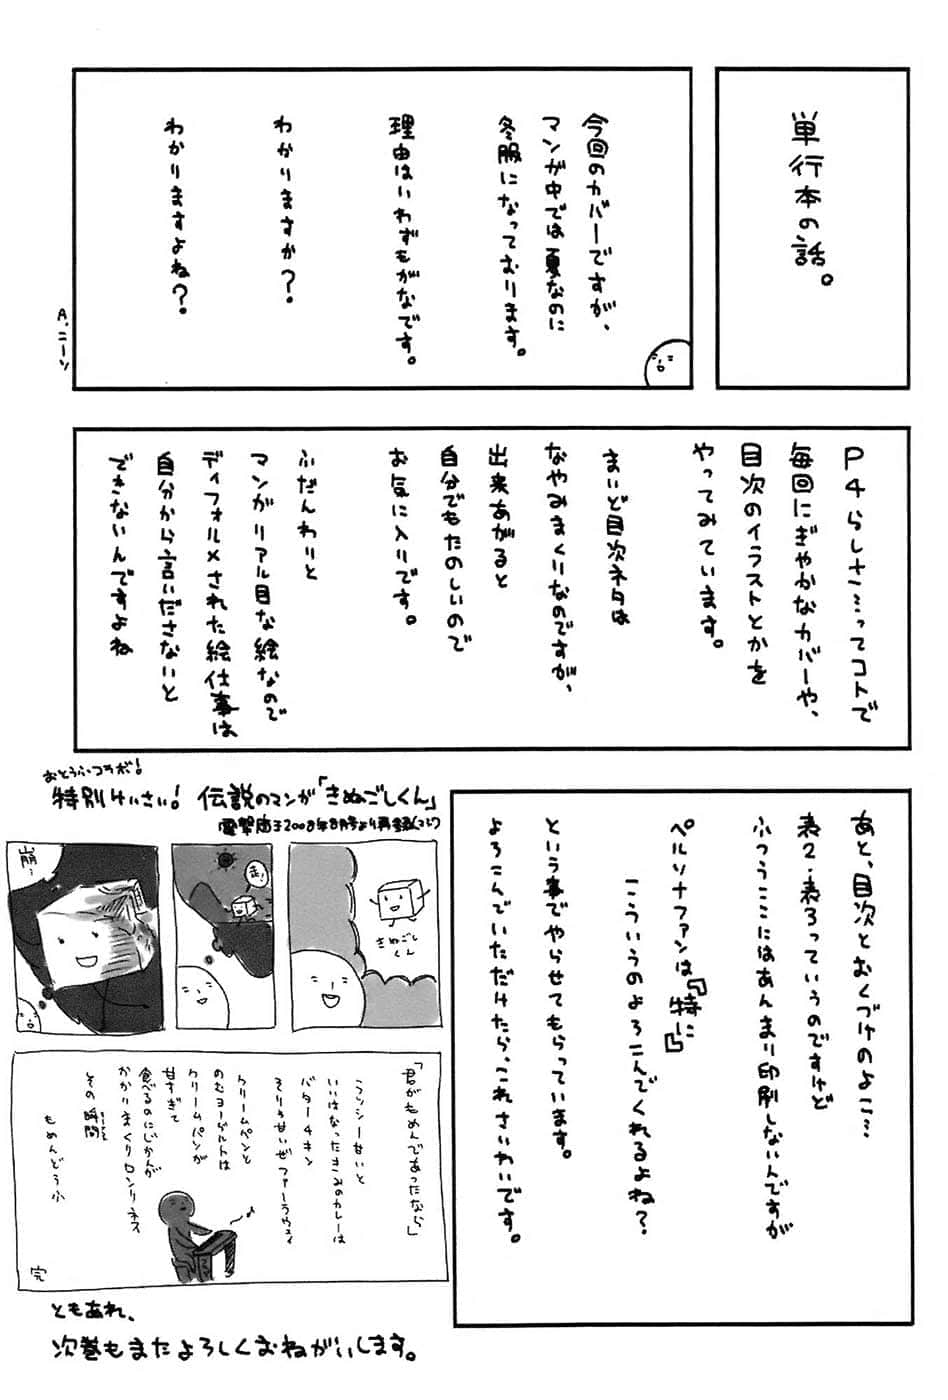 単行本の話。
今回のカバーですが、
マンガ中では夏なのに
冬服になっております。
理由はいわずもがなです。
わかりますか?
わかりますよね?
A.ニーソ
P4らしさ…ってコトで
毎回にぎやかなカバーや、
目次のイラストとかを
やってみています。
まいど目次ネタは
なやみまくりなのですが、
出来あがると
自分でもたのしいので
お気に入りです。
ふだんわりと
マンガリアル目な絵なので
ディフォルメされた絵仕事は
自分から言いださないと
できないんですよね
あと、目次とおくづけのよこ…
表2・表3っていうのですけど
ふつうここにはあんまり印刷しないんですが
ペルソナファンは『特に』
こういうのよろこんでくれるよね?
という事でやらせてもらっています。
よろこんでいただけたら、これさいわいです。
おとうふコラボ!
特別けいさい! 伝説のマンガ「きぬごしくん」
2008年8月号より再録
きぬごし
くん
走!
崩…
「君がもめんであったなら」
ラッシー甘いと
いいはなったきみのカレーは
バターチキン
そりゃ甘いぜファーラウェイ
クリームパンと
のむヨーグルトは
甘すぎて
クリームパンが
食べるのにじかんが
かかりまくりロンリネス
その瞬間
もめんどうふ
完
ともあれ、
次巻もまたよろしくおねがいします。